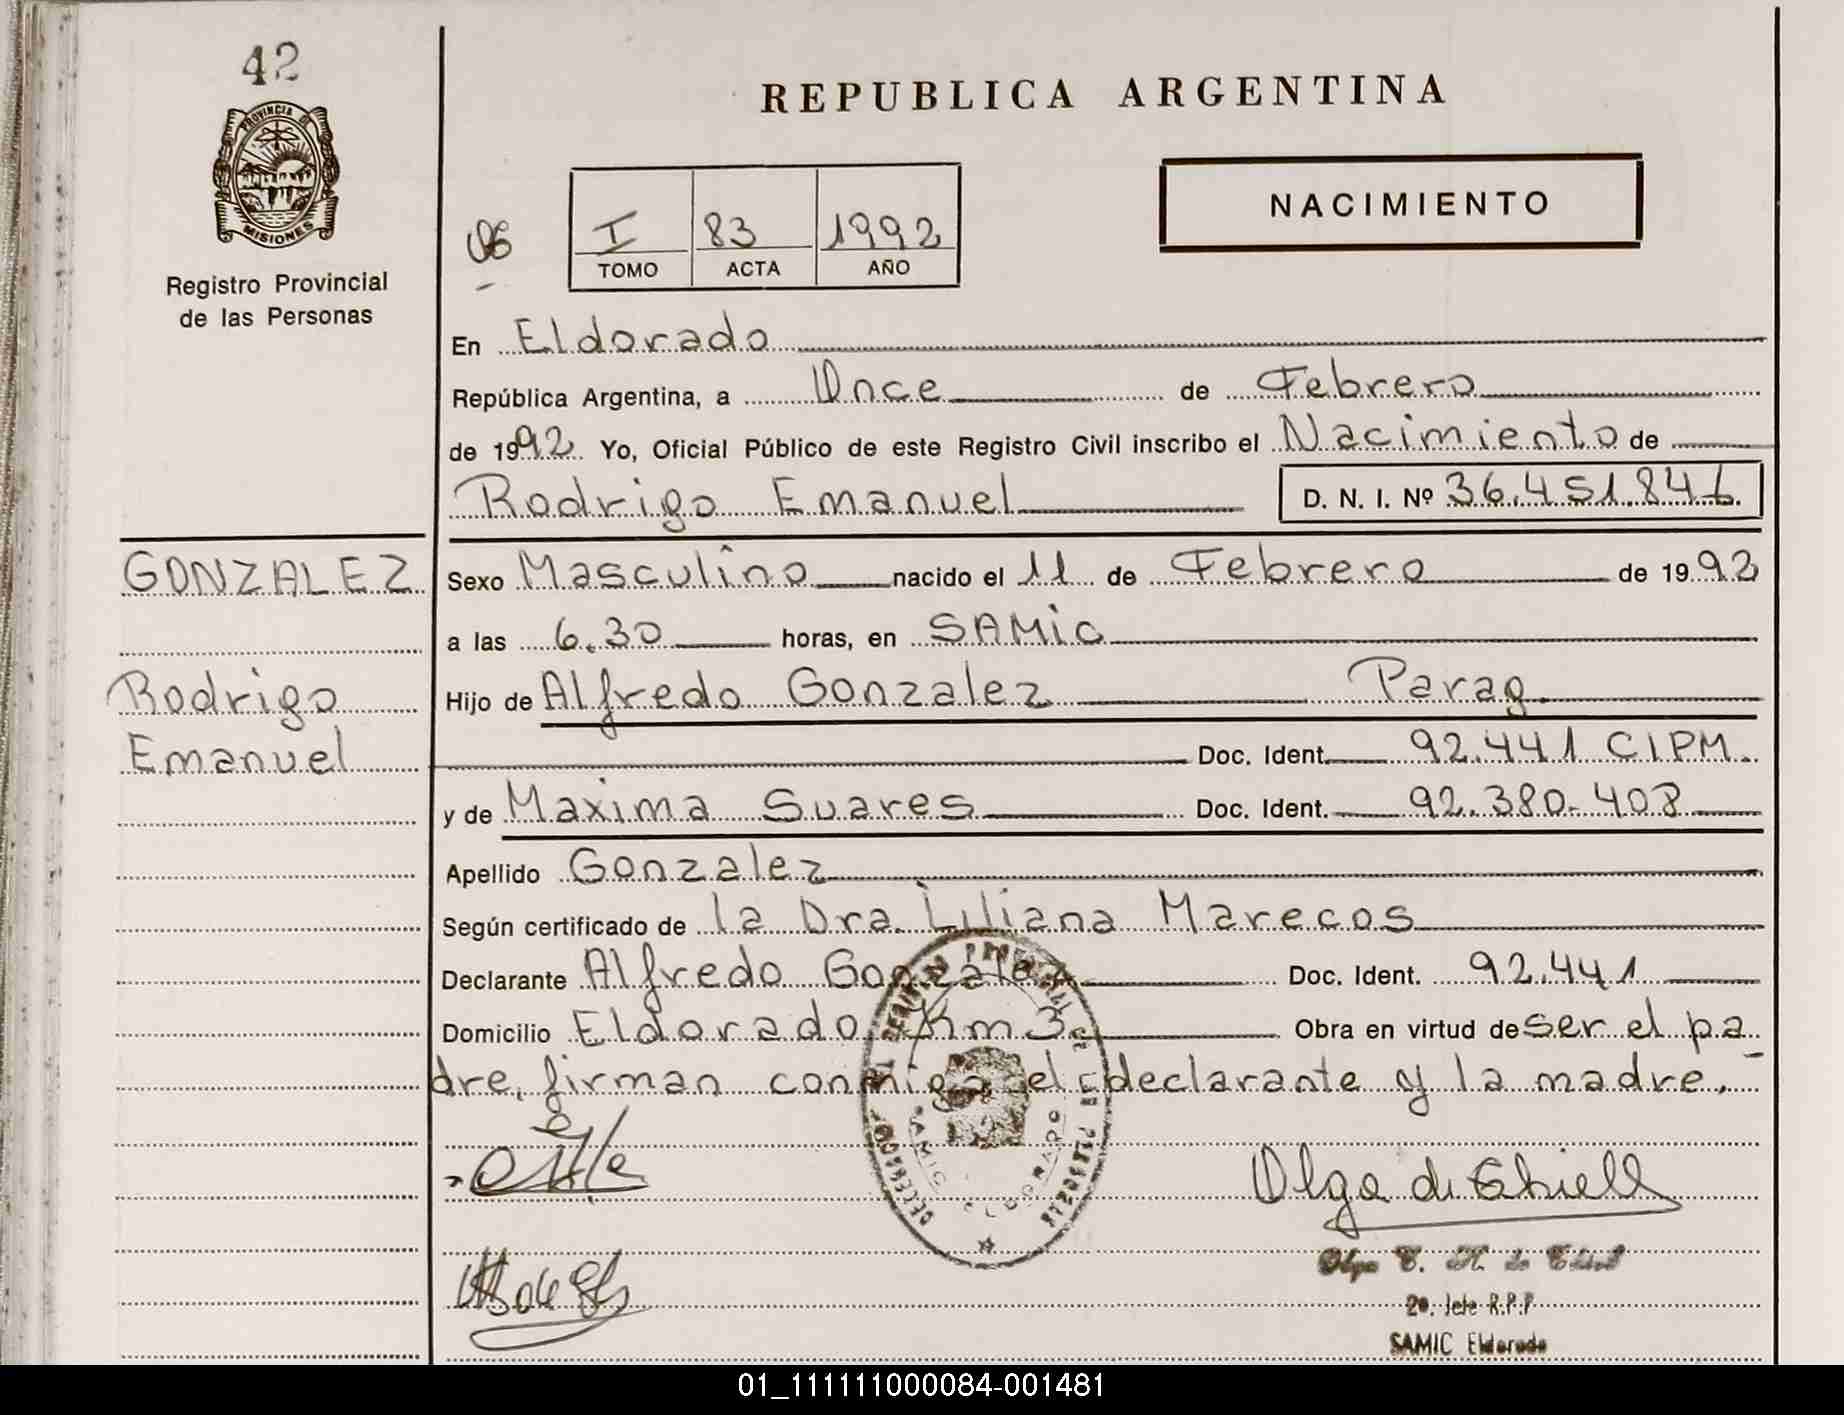 42
REPUBLICA ARGENTINA
PROVINCIA DE
MISIONES
Registro Provincial
de las Personas
I 83 1992
TOMO ACTA AÑO
NACIMIENTO
En Eldorado
República Argentina, a Once de Febrero
de 1992 Yo, Oficial Público de este Registro Civil inscribo el Nacimiento de
Rodrigo Emanuel D. N. I. Nº 36.451.846
GONZALEZ
Rodrigo
Emanuel
Sexo Masculino nacido el 11 de Febrero de 1992
a las 6.30 horas, en SAMIC
Hijo de Alfredo Gonzalez Parag.
Doc. Ident. 92.441 CIPM.
y de Maxima Suares Doc. Ident. 92.380.408
Apellido Gonzalez
Según certificado de la Dra. Liliana Marecos
Declarante Alfredo Gonzalez Doc. Ident. 92.441
Domicilio Eldorado Km 3 Obra en virtud de ser el pa
dre, firman conmigo el declarante y la madre.
SAMIC ELDORADO
Olga de
Olga
2º Jefe R.P.P
SAMIC Eldorado
01_111111000084-001481